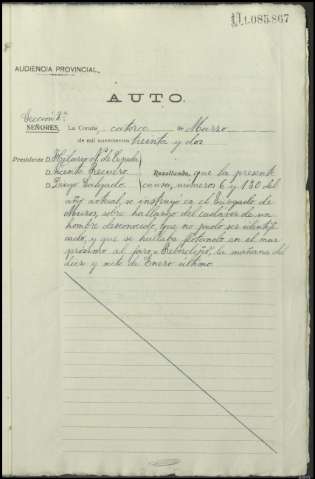 1.085.867
AUDIENCIA PROVINCIAL
AUTO.
Sección 2ª
SEÑORES, La Coruña, catorce de Marzo
de mil novecientos treinta y dos
Presidente D. Hilario Nª de Cepeda
D. Vicente Pereiro Resultando, que la presente
D. Diego Salgado causa, números 6 y 130 del
año actual, se instruyó en el Juzgado de
Muros, sobre hallazgo del cadáver de un
hombre desconocido, que no pudo ser identifi-
cado, y que se hallaba flotando en el mar
próximo al faro "Rebordiño", la mañana del
diez y siete de Enero último.